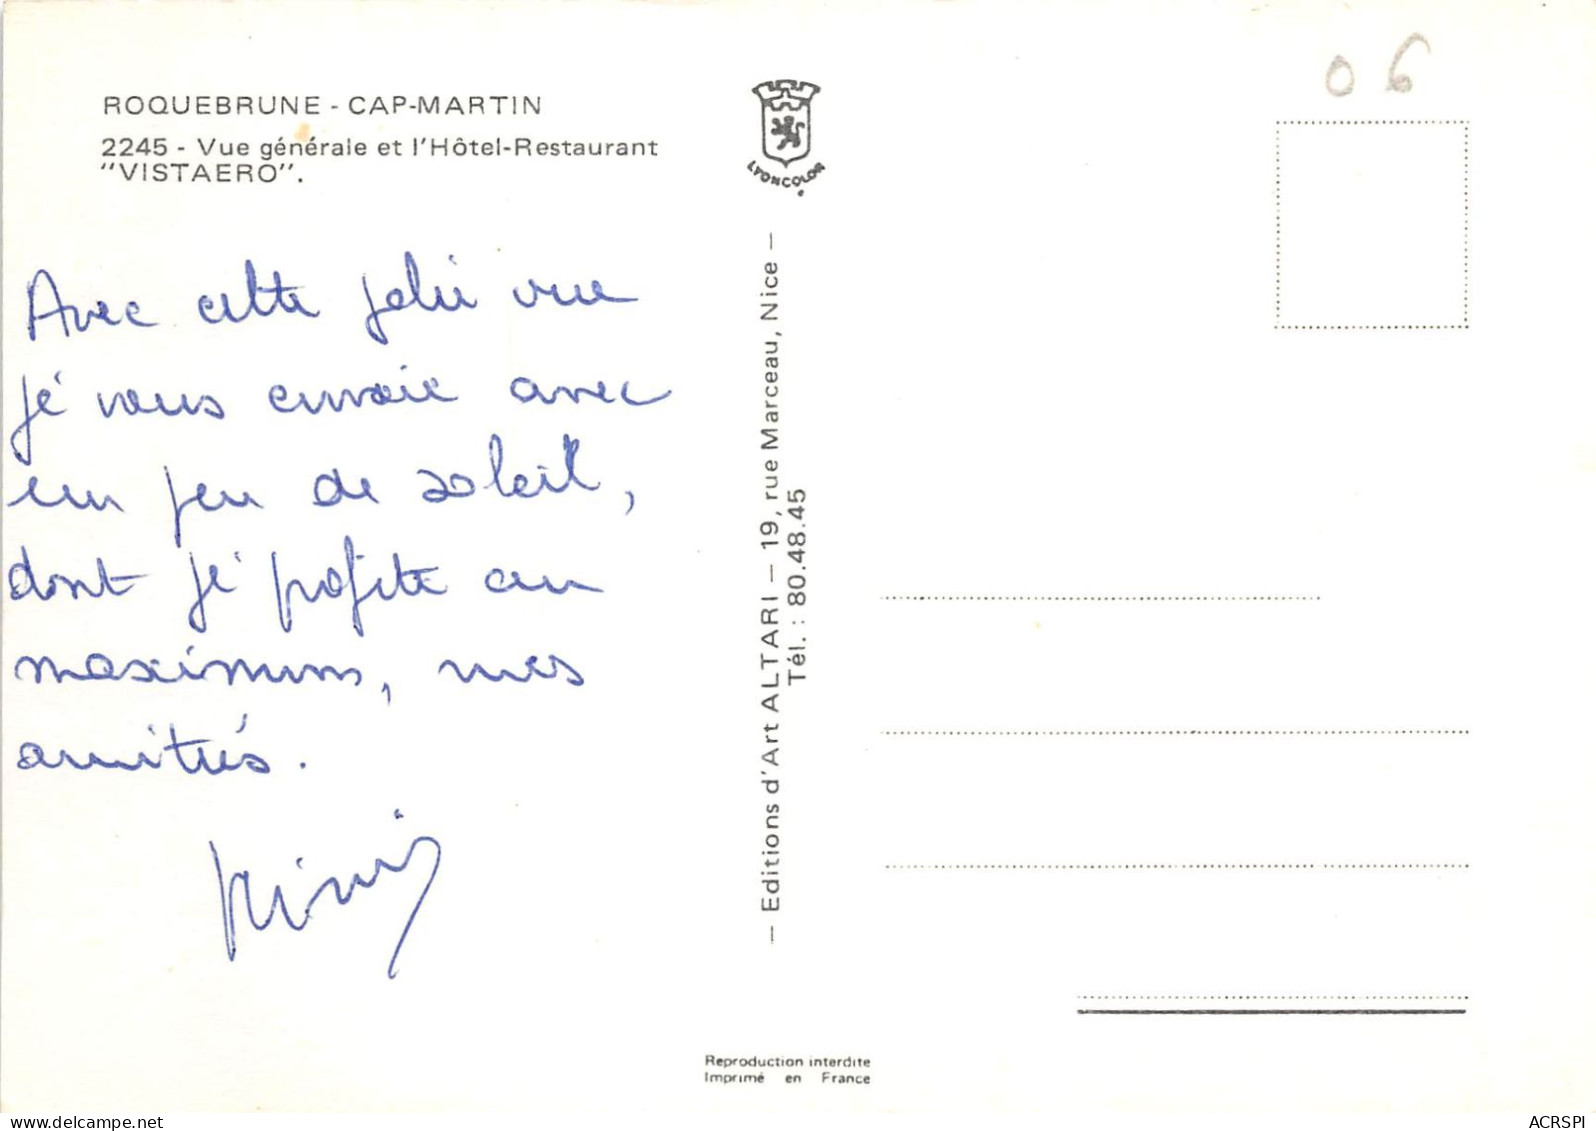 ROQUEBRUNE - CAP-MARTIN
2245 - Vue générale et l'Hôtel-Restaurant
"VISTAERO".
Avec cette jolie vue
je vous envoie avec
un peu de soleil,
dont je profite au
maximum, mes
amitiés.
06
LYONCOLOR
— Editions d'Art ALTARI — 19, rue Marceau, Nice —
Tél. : 80.48.45
Reproduction interdite
Imprimé en France
delcampe.net
ACRSPI